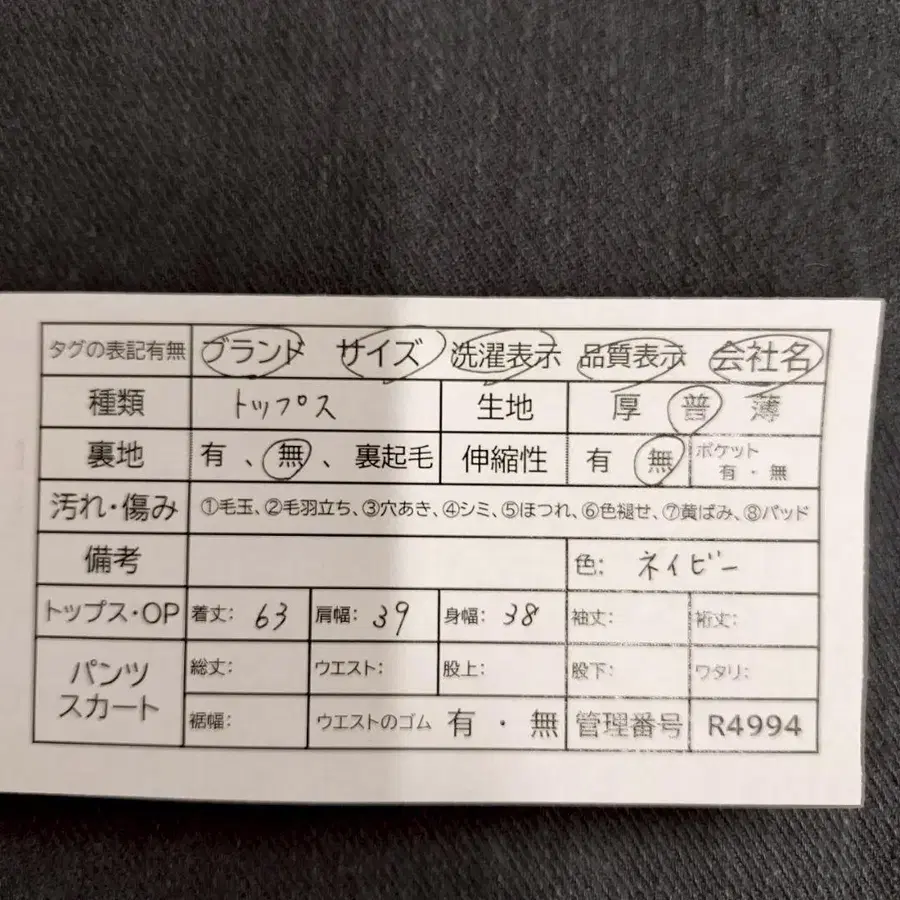 タグの表記有無 ブランド サイズ 洗濯表示 品質表示 会社名
種類 トップス 生地 厚 普 薄
裏地 有、無、裏起毛 伸縮性 有 無 ポケット 有・無
汚れ・傷み ①毛玉、②毛羽立ち、③穴あき、④シミ、⑤ほつれ、⑥色褪せ、⑦黄ばみ、⑧パッド
備考 色: ネイビー
トップス・OP 着丈: 63 肩幅: 39 身幅: 38 袖丈: 裄丈:
パンツ スカート 総丈: ウエスト: 股上: 股下: ワタリ:
裾幅: ウエストのゴム 有・無 管理番号 R4994